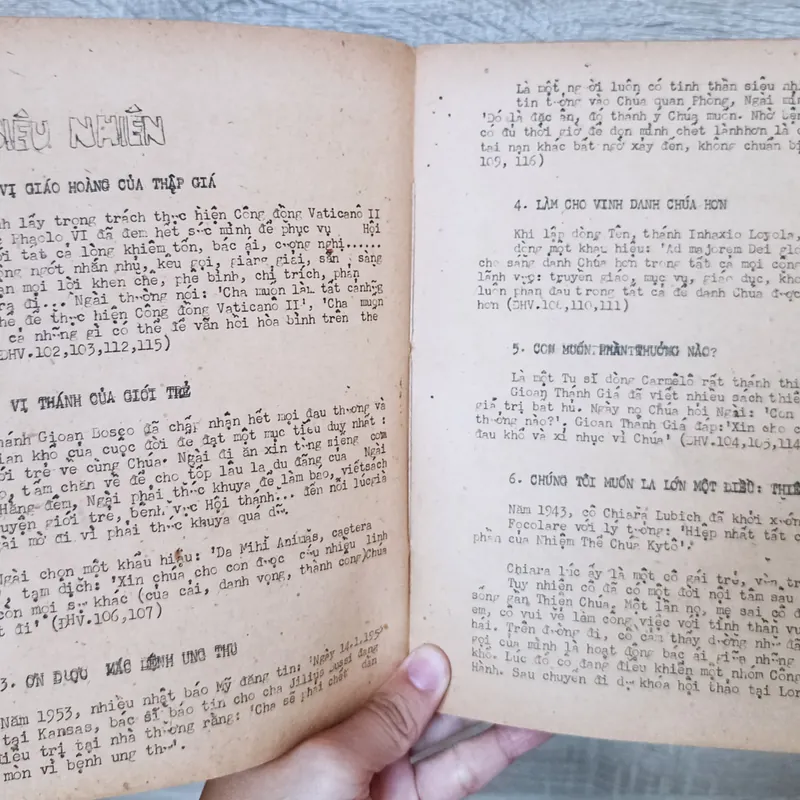 SIÊU NHIÊN
VỊ GIÁO HOÀNG CỦA THẬP GIÁ
nh lấy trọng trách thực hiện Công đồng Vaticanô II
c Phaolo VI đã đem hết sức mình để phục vụ Hội
ới tất cả lòng khiêm tốn, bác ái, cương nghị......
ông ngớt nhắn nhủ, kêu gọi, giảng giải, sẵn sàng
ận mọi lời khen chê, phê bình, chỉ trích, phản
ra đi... Ngài thường nói: 'Cha muốn làm tất cả những
thể để thực hiện Công đồng Vaticanô II', 'Cha muốn
cả những gì có thể để vãn hồi hòa bình trên thế
ĐHV.102,103,112,115)
VỊ THÁNH CỦA GIỚI TRẺ
hánh Gioan Bosco đã chấp nhận hết mọi đau thương và
gian khổ của cuộc đời để đạt một mục tiêu duy nhất :
ới trẻ về cùng Chúa. Ngài đi ăn xin từng miếng cơm
o, tấm chăn về để cho tốp lâu la du đãng của Ngài
Hằng đêm, Ngài phải thức khuya để làm báo, viết sách
uyện giới trẻ, bênh vực Hội thánh... đến nỗi lúc già
ài mờ đi vì phải thức khuya quá độ.
Ngài chọn một khẩu hiệu: 'Da Mihi Animas, caetera
, tạm dịch: 'Xin chúa cho con được cứu nhiều linh
còn mọi sự khác (của cải, danh vọng, thành công) Chúa
t đi' (ĐHV.106,107)
3. ƠN ĐƯỢC MẮC BỆNH UNG THƯ
Năm 1953, nhiều nhật báo Mỹ đăng tin: 'Ngày 14.1.1953
tại Kansas, bác sĩ báo tin cho cha Jilius đang
điều trị tại nhà thương rằng: 'Cha sẽ phải chết dần
mòn vì bệnh ung thư'.
Là một người luôn có tinh thần siêu nhi
tin tưởng vào Chúa quan Phòng, Ngài mỉ
'Đó là đặc ân, đó thánh ý Chúa muốn. Nhờ bệ
có đủ thời giờ để dọn mình chết lành hơn là c
tai nạn khác bất ngờ xảy đến, không chuẩn bị
109, 116)
4. LÀM CHO VINH DANH CHÚA HƠN
Khi lập dòng Tên, thánh Inhaxio Loyola,
dòng một khẩu hiệu: 'Ad majorem Dei glo
cho sáng danh Chúa hơn trong tất cả mọi công
lãnh vực: truyền giáo, mục vụ, giáo dục, kho
luôn phấn đấu trong tất cả để danh Chúa được
hơn (ĐHV.106,110,111)
5. CON MUỐN PHẦN THƯỞNG NÀO?
Là một Tu sĩ dòng Carmêlô rất thánh thi
Gioan Thánh Giá đã viết nhiều sách thiê
giá trị bất hủ. Ngày nọ Chúa hỏi Ngài: 'Con
thưởng nào?'. Gioan Thánh Giá đáp: 'Xin cho c
đau khổ và xỉ nhục vì Chúa' (ĐHV.104,105,114
6. CHÚNG TÔI MUỐN LA LỚN MỘT ĐIỀU: THIÊ
Năm 1943, cô Chiara Lubich đã khởi xướng
Focolare với lý tưởng: 'Hiệp nhất tất c
phần của Nhiệm Thể Chúa Kytô'.
Chiara lúc ấy là một cô gái trẻ, vẫn tr
Tuy nhiên cô đã có một đời nội tâm sâu
sống gần Thiên Chúa. Một lần nọ, mẹ sai cô đ
em, cô vui vẻ làm công việc với tinh thần vu
hái. Trên đường đi, cô cảm thấy dường như đã
gọi của mình là hoạt động bác ái giữa những
khổ. Lúc đó cô đang điều khiển một nhóm Công
Hành. Sau chuyến đi dự khóa hội thảo tại Lor